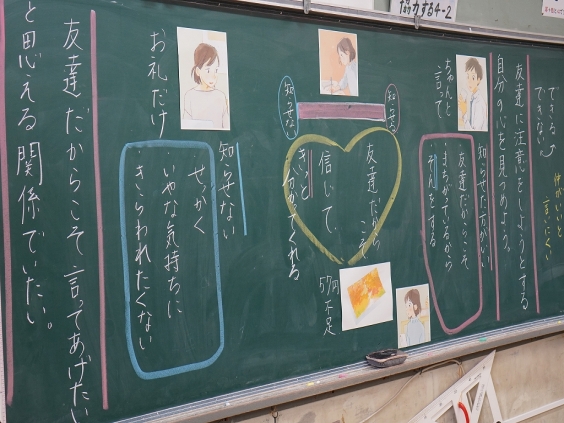 協力する4-2
できる
できない
仲がいいと
言いにくい
友達に注意をしようとする
自分の心を見つめよう。
ちゃんと
言って
知らせた方がいい
友達だからこそ
まちがっているから
そんをする
知らせる
知らせない
友達だから
こそ
信じて、
きっと
分かってくれる
57円
不足
お礼だけ
知らせない
せっかく
いやな気持ちに
きらわれたくない
友達だからこそ言ってあげたい
と思える関係でいたい。